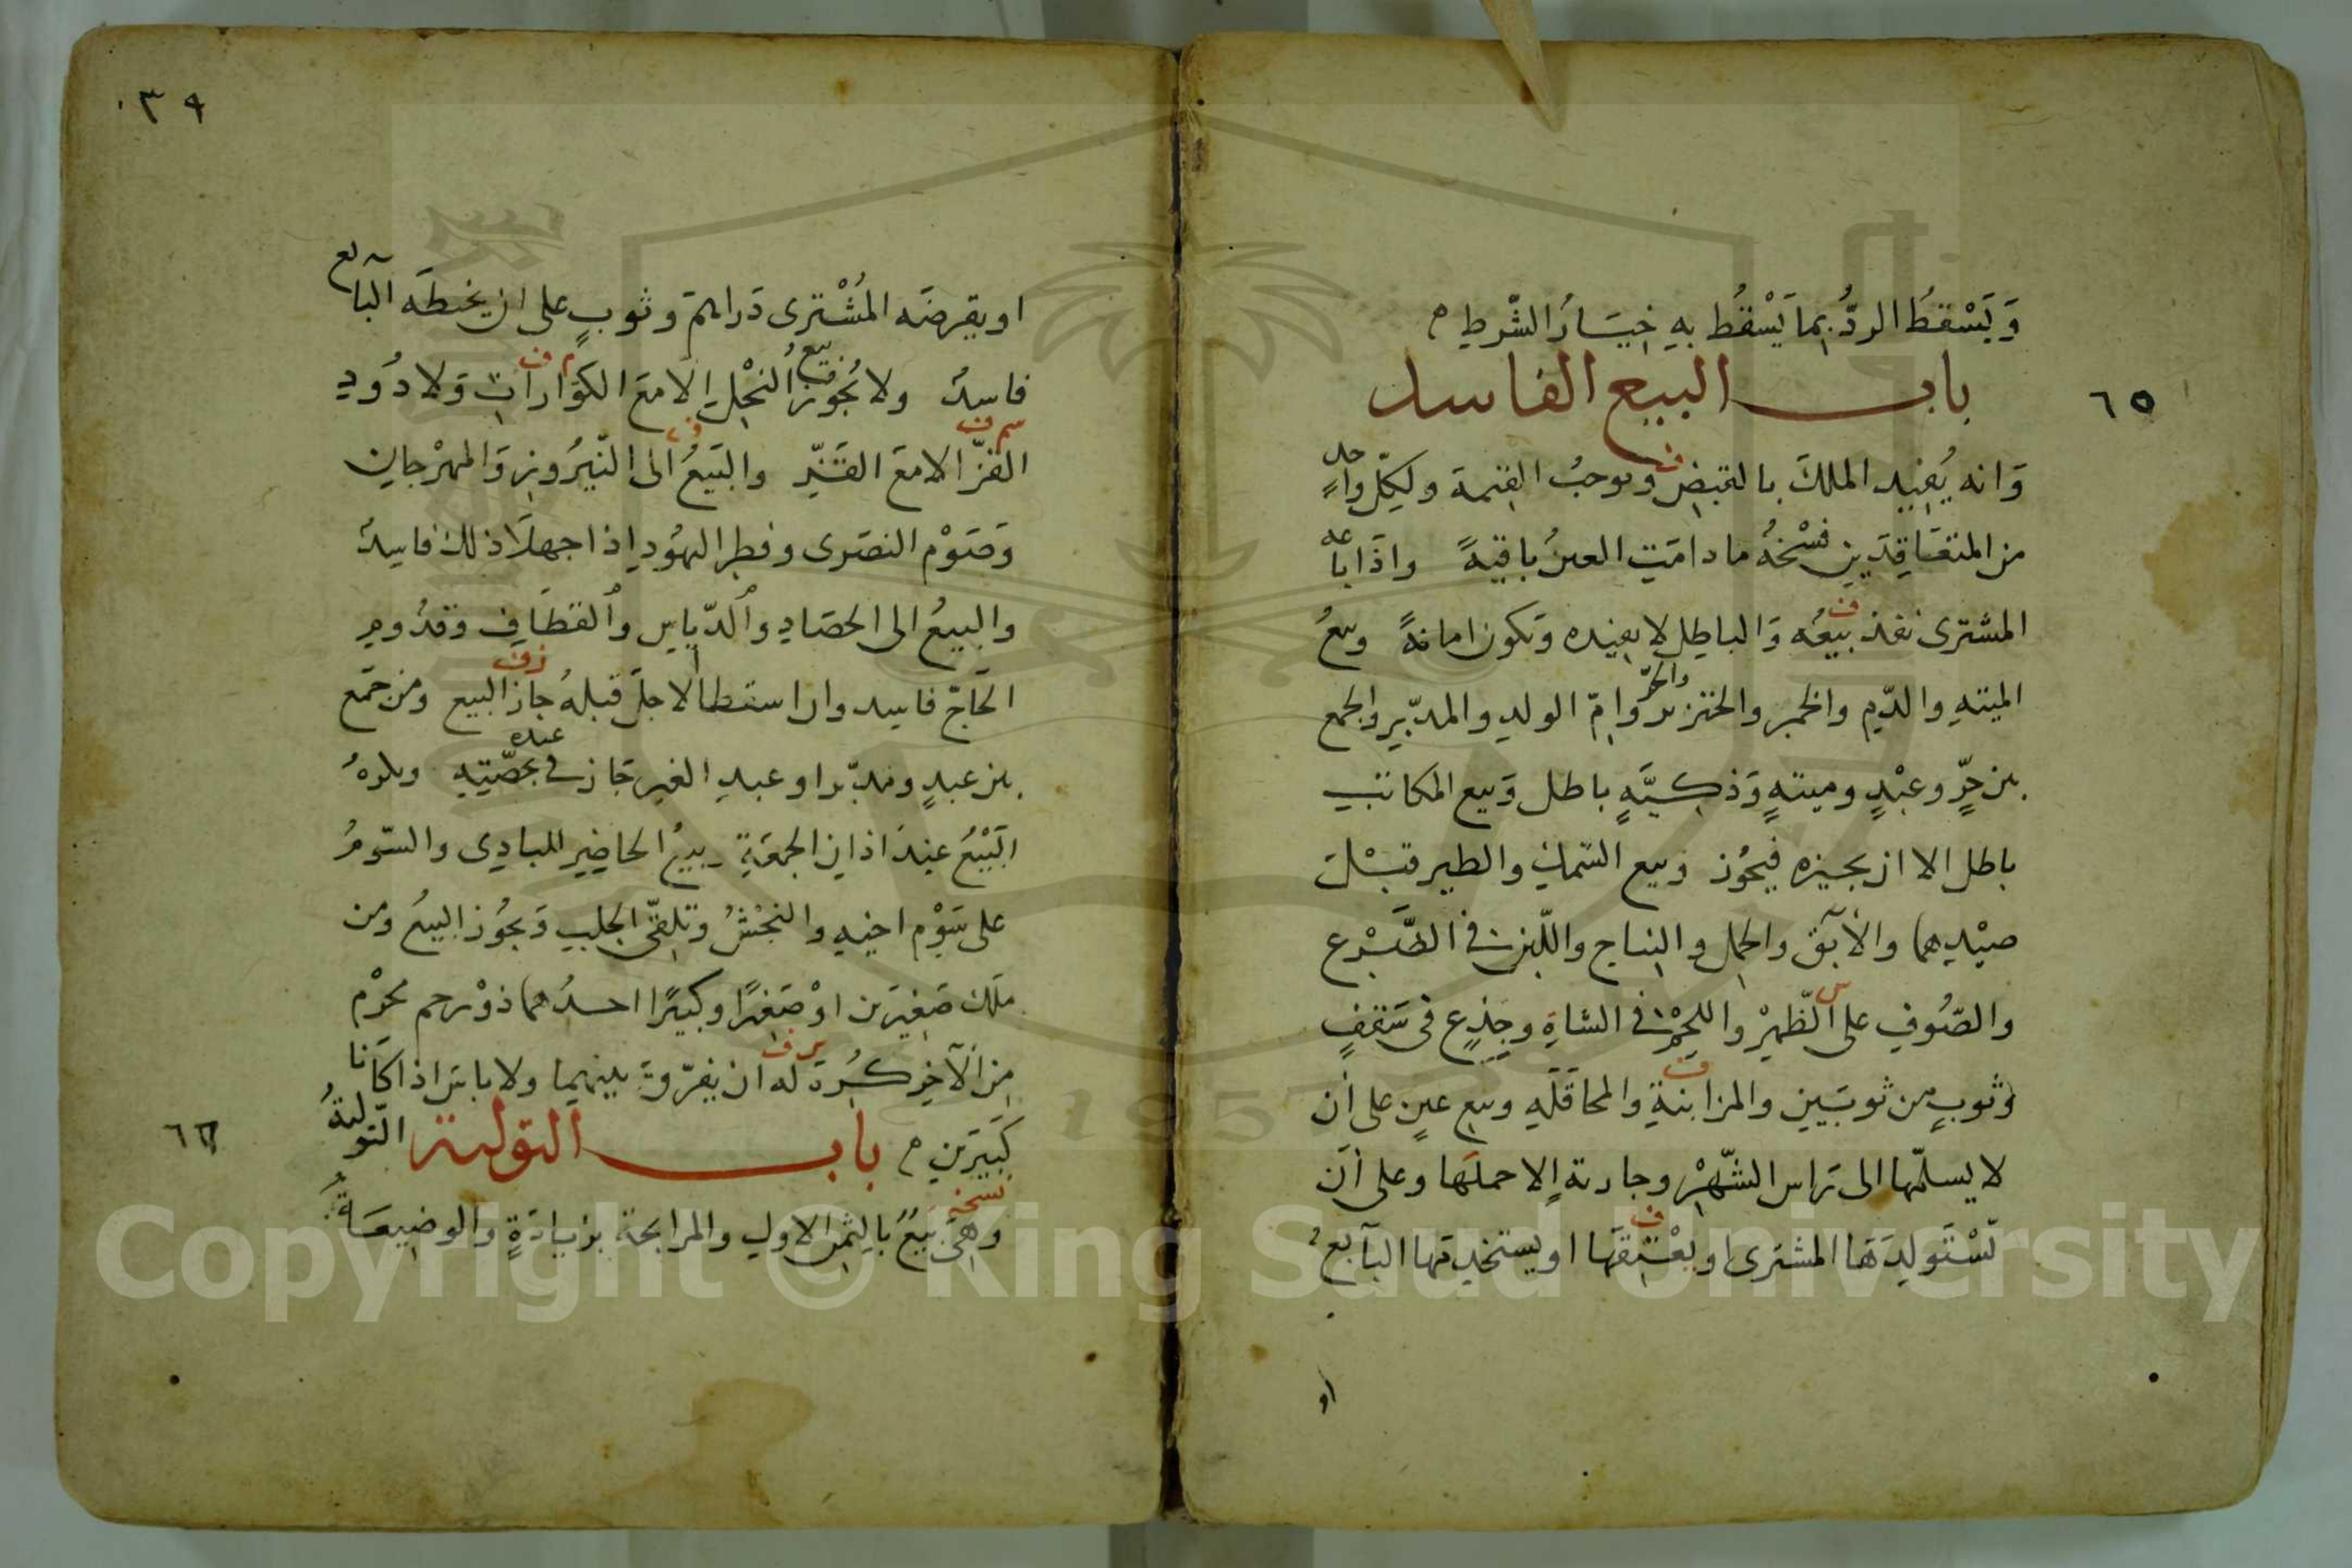 وَيَسْقُطُ الردُّ بما يَسْقُطُ بِهِ خِيَارُ الشّرطِ
باب البيع الفاسد
٦٥
وَانه يُفِيد الملكَ بالقبضِ ويوجبُ القيمة ولكلّ واحدٍ
من المتعَاقِدَينِ فسْخهُ ما دامَتِ العينُ باقيةً واذَا باعه
المشترى نفذ بيعُه وَالباطِل لا يفيده وَيكون امانةً وبيعُ
الميتةِ والدّمِ والخمر والخنزير والحرّ وامّ الولدِ والمدبّرِ والجمع
بين حرٍّ وعبْدٍ وميتةٍ وَذكيَّةٍ باطل وَبيع المكاتبِ
باطل الا ان يجيزه فيجُوز وبيع السّمكِ والطيرِ قبْلَ
صيْدِهما والآبق والحمل والنتاج واللّبن فى الضَّرْع
والصّوفِ على الظّهرْ واللحْم فى الشاةِ وجذعٍ فى سَقفٍ
وثوبٍ من ثوبَينِ والمزابنةِ والمحاقَلَه وبيعِ عينٍ على أن
لا يسلّمها الى راس الشّهْرِ وجارية إلا حملَها وعلى أن
يَسْتَولِدَهَا المشترى او يعْتِقَها او يستخدِمَها البآيع
او
٣٩
او يقرضَه المُشْترى دَراهمَ وثوبٍ على ان يخيطَه البآئع
فاسدٌ ولا يُجوّزُ بيع النحْلِ الا معَ الكوّاراتِ وَلا دُودِ
القزّ الا معَ القَزِّ والبَيعُ الى النّيرُوزِ وَالمهرْجانِ
وَصَوْم النصَرى وفطرِ اليهُودِ اذا جهلَا ذلك فاسدٌ
والبيعُ الى الحصَادِ والدّياسِ والقطَافِ وقدُومِ
الحَاجّ فاسد وان اسقطا الاجلَ قبلهُ جاز البيع ومن جمَع
بين عبدٍ ومدبّر او عبدِ الغير جَاز فى عبده بحصّتِهِ ويكرهُ
البَيْعُ عِندَ اذانِ الجمعَةِ وبيعُ الحاضِرِ للبادِى والسّومُ
على سَوْمِ اخيهِ والنجْشُ وتلقّى الجلبِ وَيجُوز البيعُ ومن
ملَكَ صَغِيرَين اوْ صَغيرًا وكبيرًا احدُهما ذوْ رحم محرْم
مِن الآخِرِ كُرِهَ له ان يفرّوقَ بينهما ولا باس اذا كانا
كَبيرَينِ باب التولية التّوليةُ
٦٦
نسخه
وهى بَيعٌ بالثمن الاولِ والمرابحةُ بزيادَةٍ وَالوضِيعَةُ
Copyright © King Saud University
1957